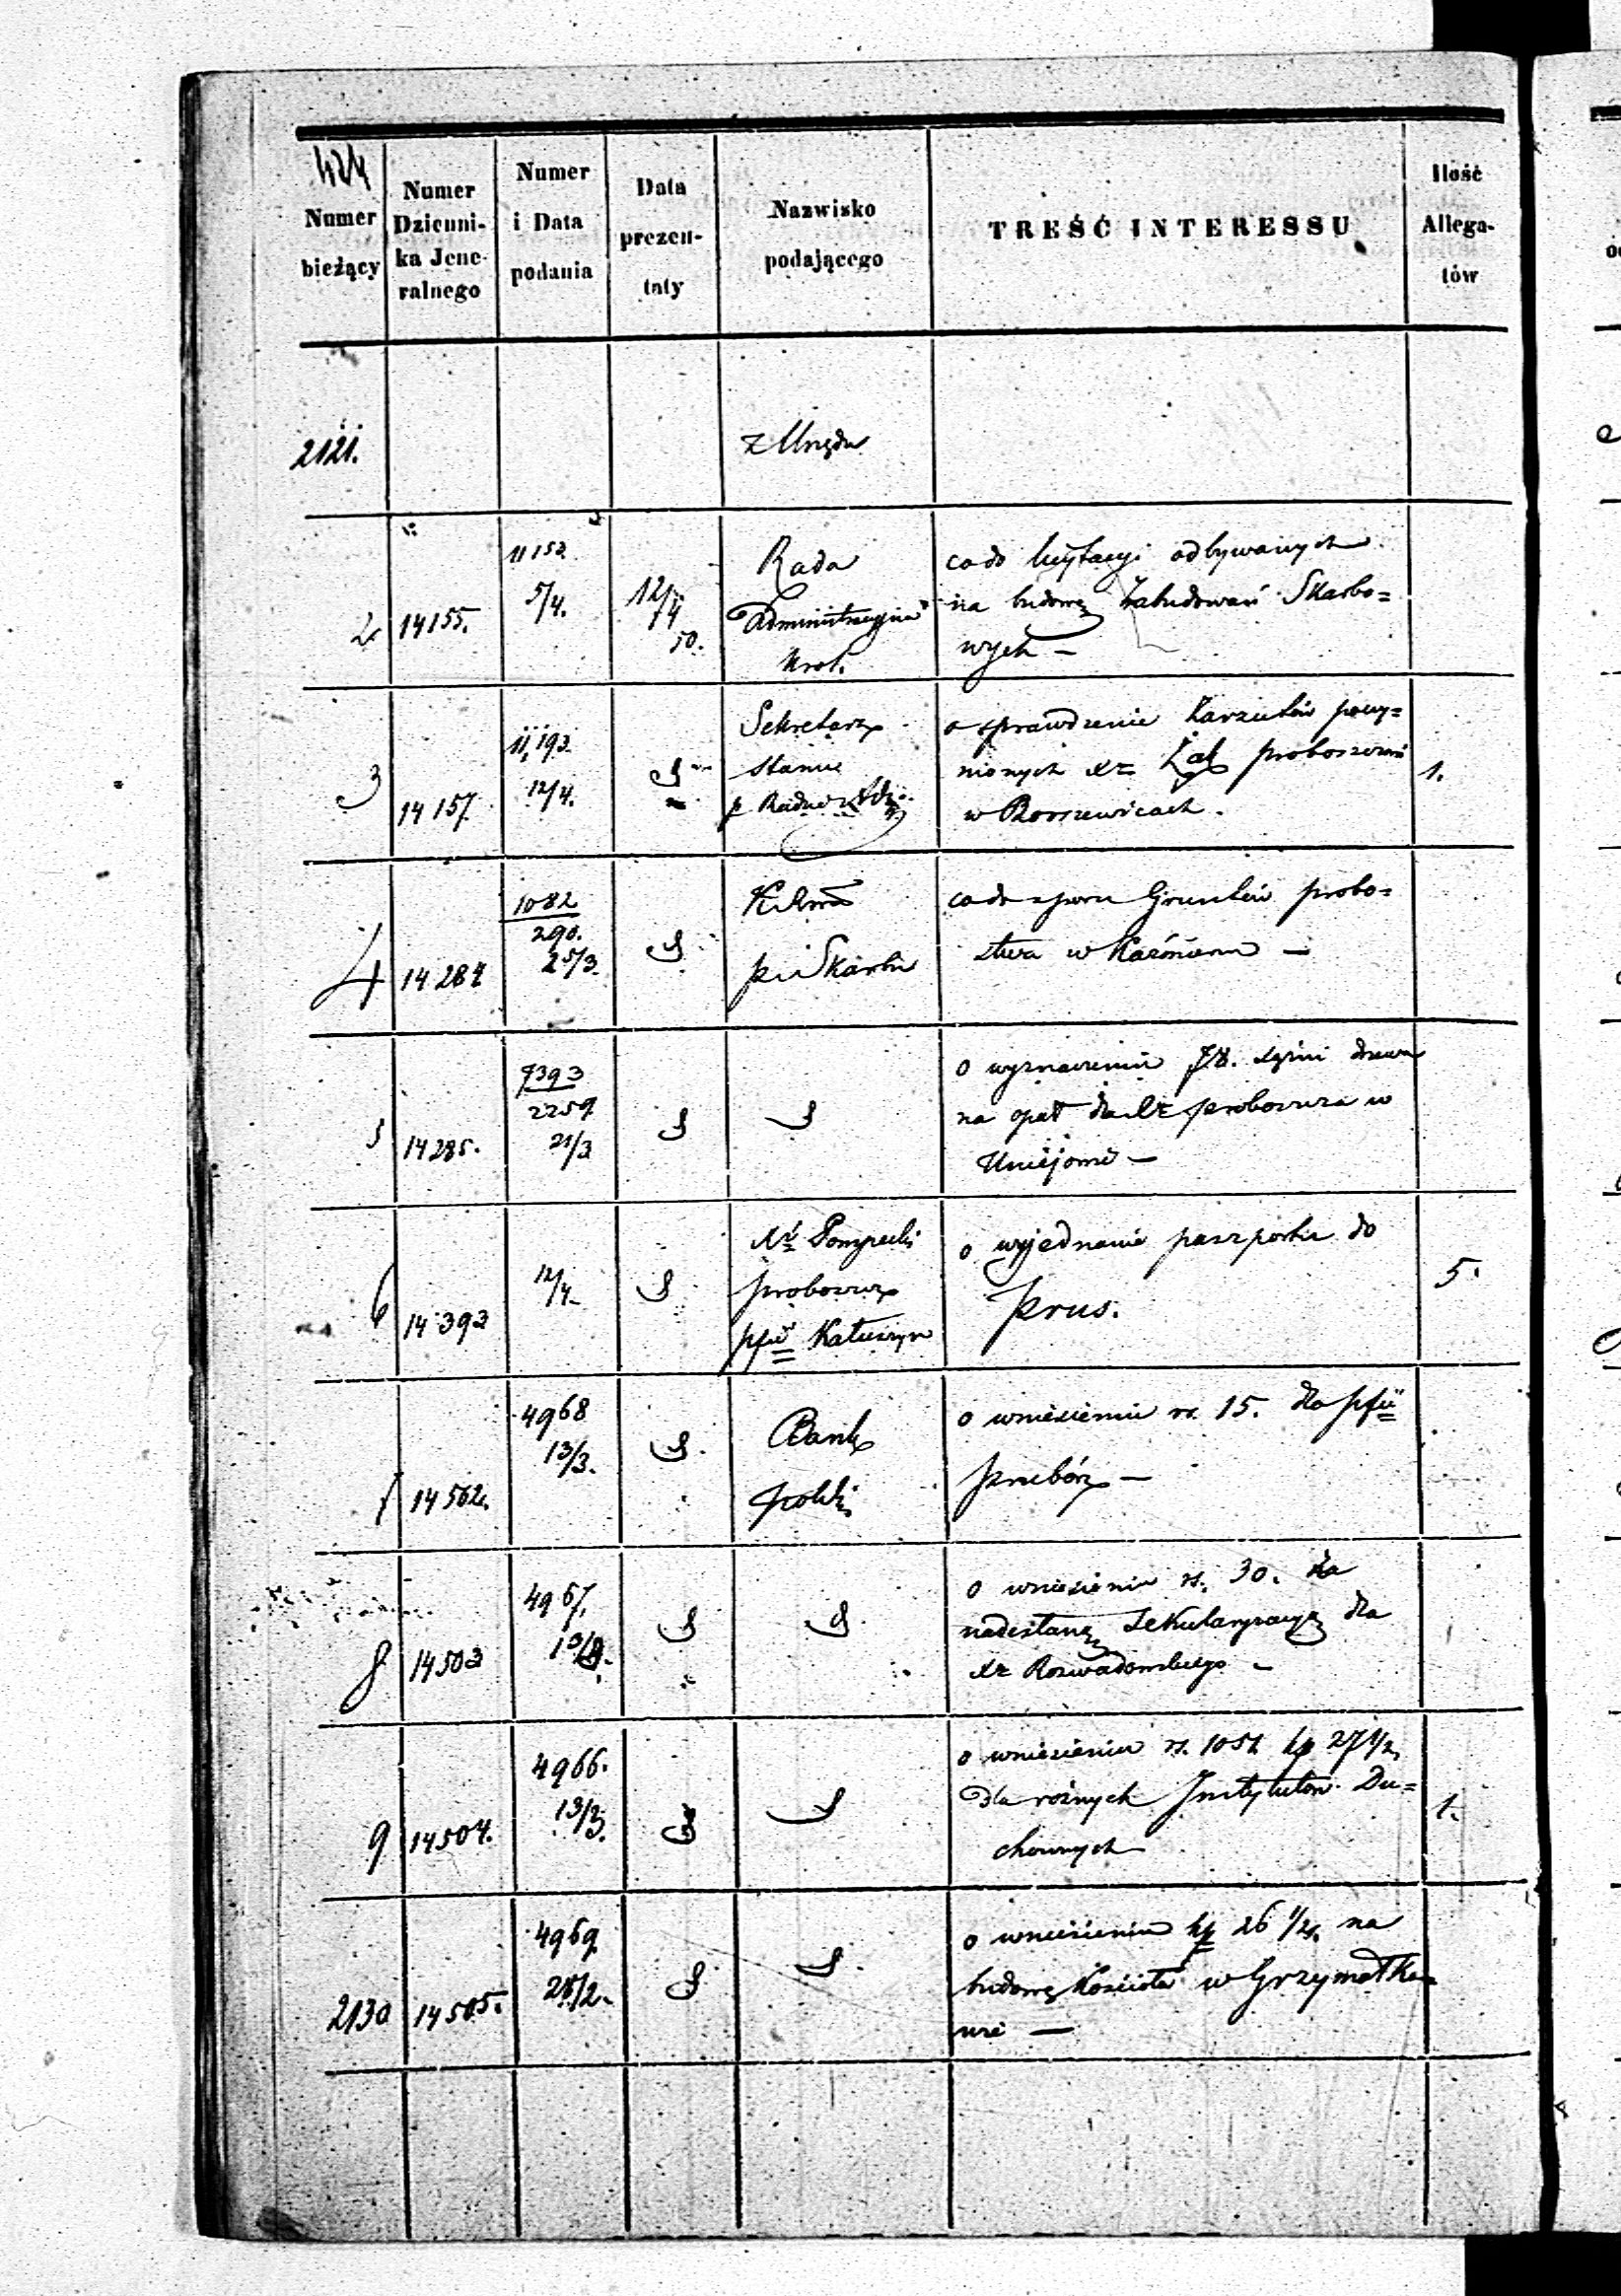 424
Numer bieżący
Numer Dzienni-ka Jene-ralnego
Numer i Data podania
Data prezen-taty
Nazwisko podającego
TREŚĆ INTERESSU
Ilość Allega-tów
2121.
z Urzędu
2
14155.
11152
5/4.
12/4
50.
Rada
Administracyjna
Krol.
co do licytacyi odbywanych
na budowę Zabudowań Skarbo=
wych —
3
14157
11,193
12/4.
Sekretarz
Stanu
o sprawdzenie Zarzutów
nionych Xz
w
1.
4
14284
1082
290.
25/3.
p i Skarbu
co do sporu Gruntów probo=
stwa w Kazimierzu —
5
14285.
9393
2259
21/3
o wyznaczenie sążni drzewa
na opał dla Xz proboszcza w
Uniejowie —
6
14393
12/4
proboszcz
Kałuszyn
o wyjednanie paszportu do
Prus.
5.
7
14502.
4968
13/3.
Bank
polski
o wniesieniu rs. 15. dla pfii
Przeborz —
8
14503
4967.
13/3.
o wniesieniu rs. 30. za
nadesłaną Sekularyzacyę dla
Xz Rozwadowskiego —
9
14504.
4966.
13/3.
o wniesieniu rs. 1051 kp 27 1/2
dla różnych Instytutów Du=
chownych
1.
2130
14505.
4969
26/2.
o wniesieniu kp 26 1/2. na
budowę Kościoła w Grzymałko=
wie —